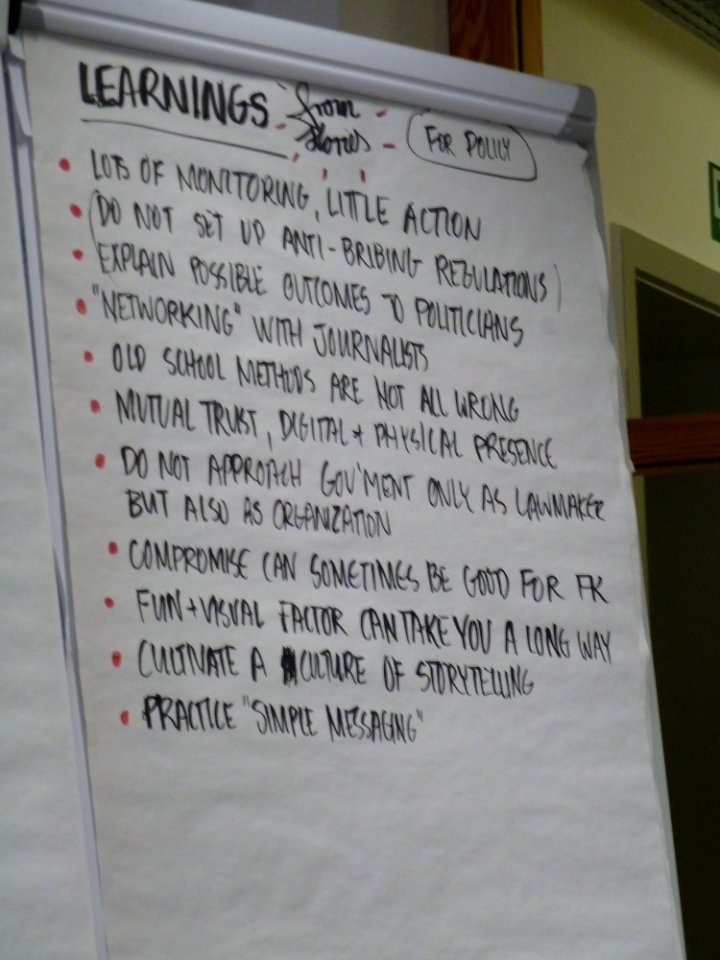 LEARNINGS from stories FOR POLICY
• LOTS OF MONITORING, LITTLE ACTION
• (DO NOT SET UP ANTI-BRIBING REGULATIONS)
• EXPLAIN POSSIBLE OUTCOMES TO POLITICIANS
• "NETWORKING" WITH JOURNALISTS
• OLD SCHOOL METHODS ARE NOT ALL WRONG
• MUTUAL TRUST, DIGITAL + PHYSICAL PRESENCE
• DO NOT APPROACH GOV'MENT ONLY AS LAWMAKER
BUT ALSO AS ORGANIZATION
• COMPROMISE CAN SOMETIMES BE GOOD FOR FK
• FUN + VISUAL FACTOR CAN TAKE YOU A LONG WAY
• CULTIVATE A CULTURE OF STORYTELLING
• PRACTICE "SIMPLE MESSAGING"